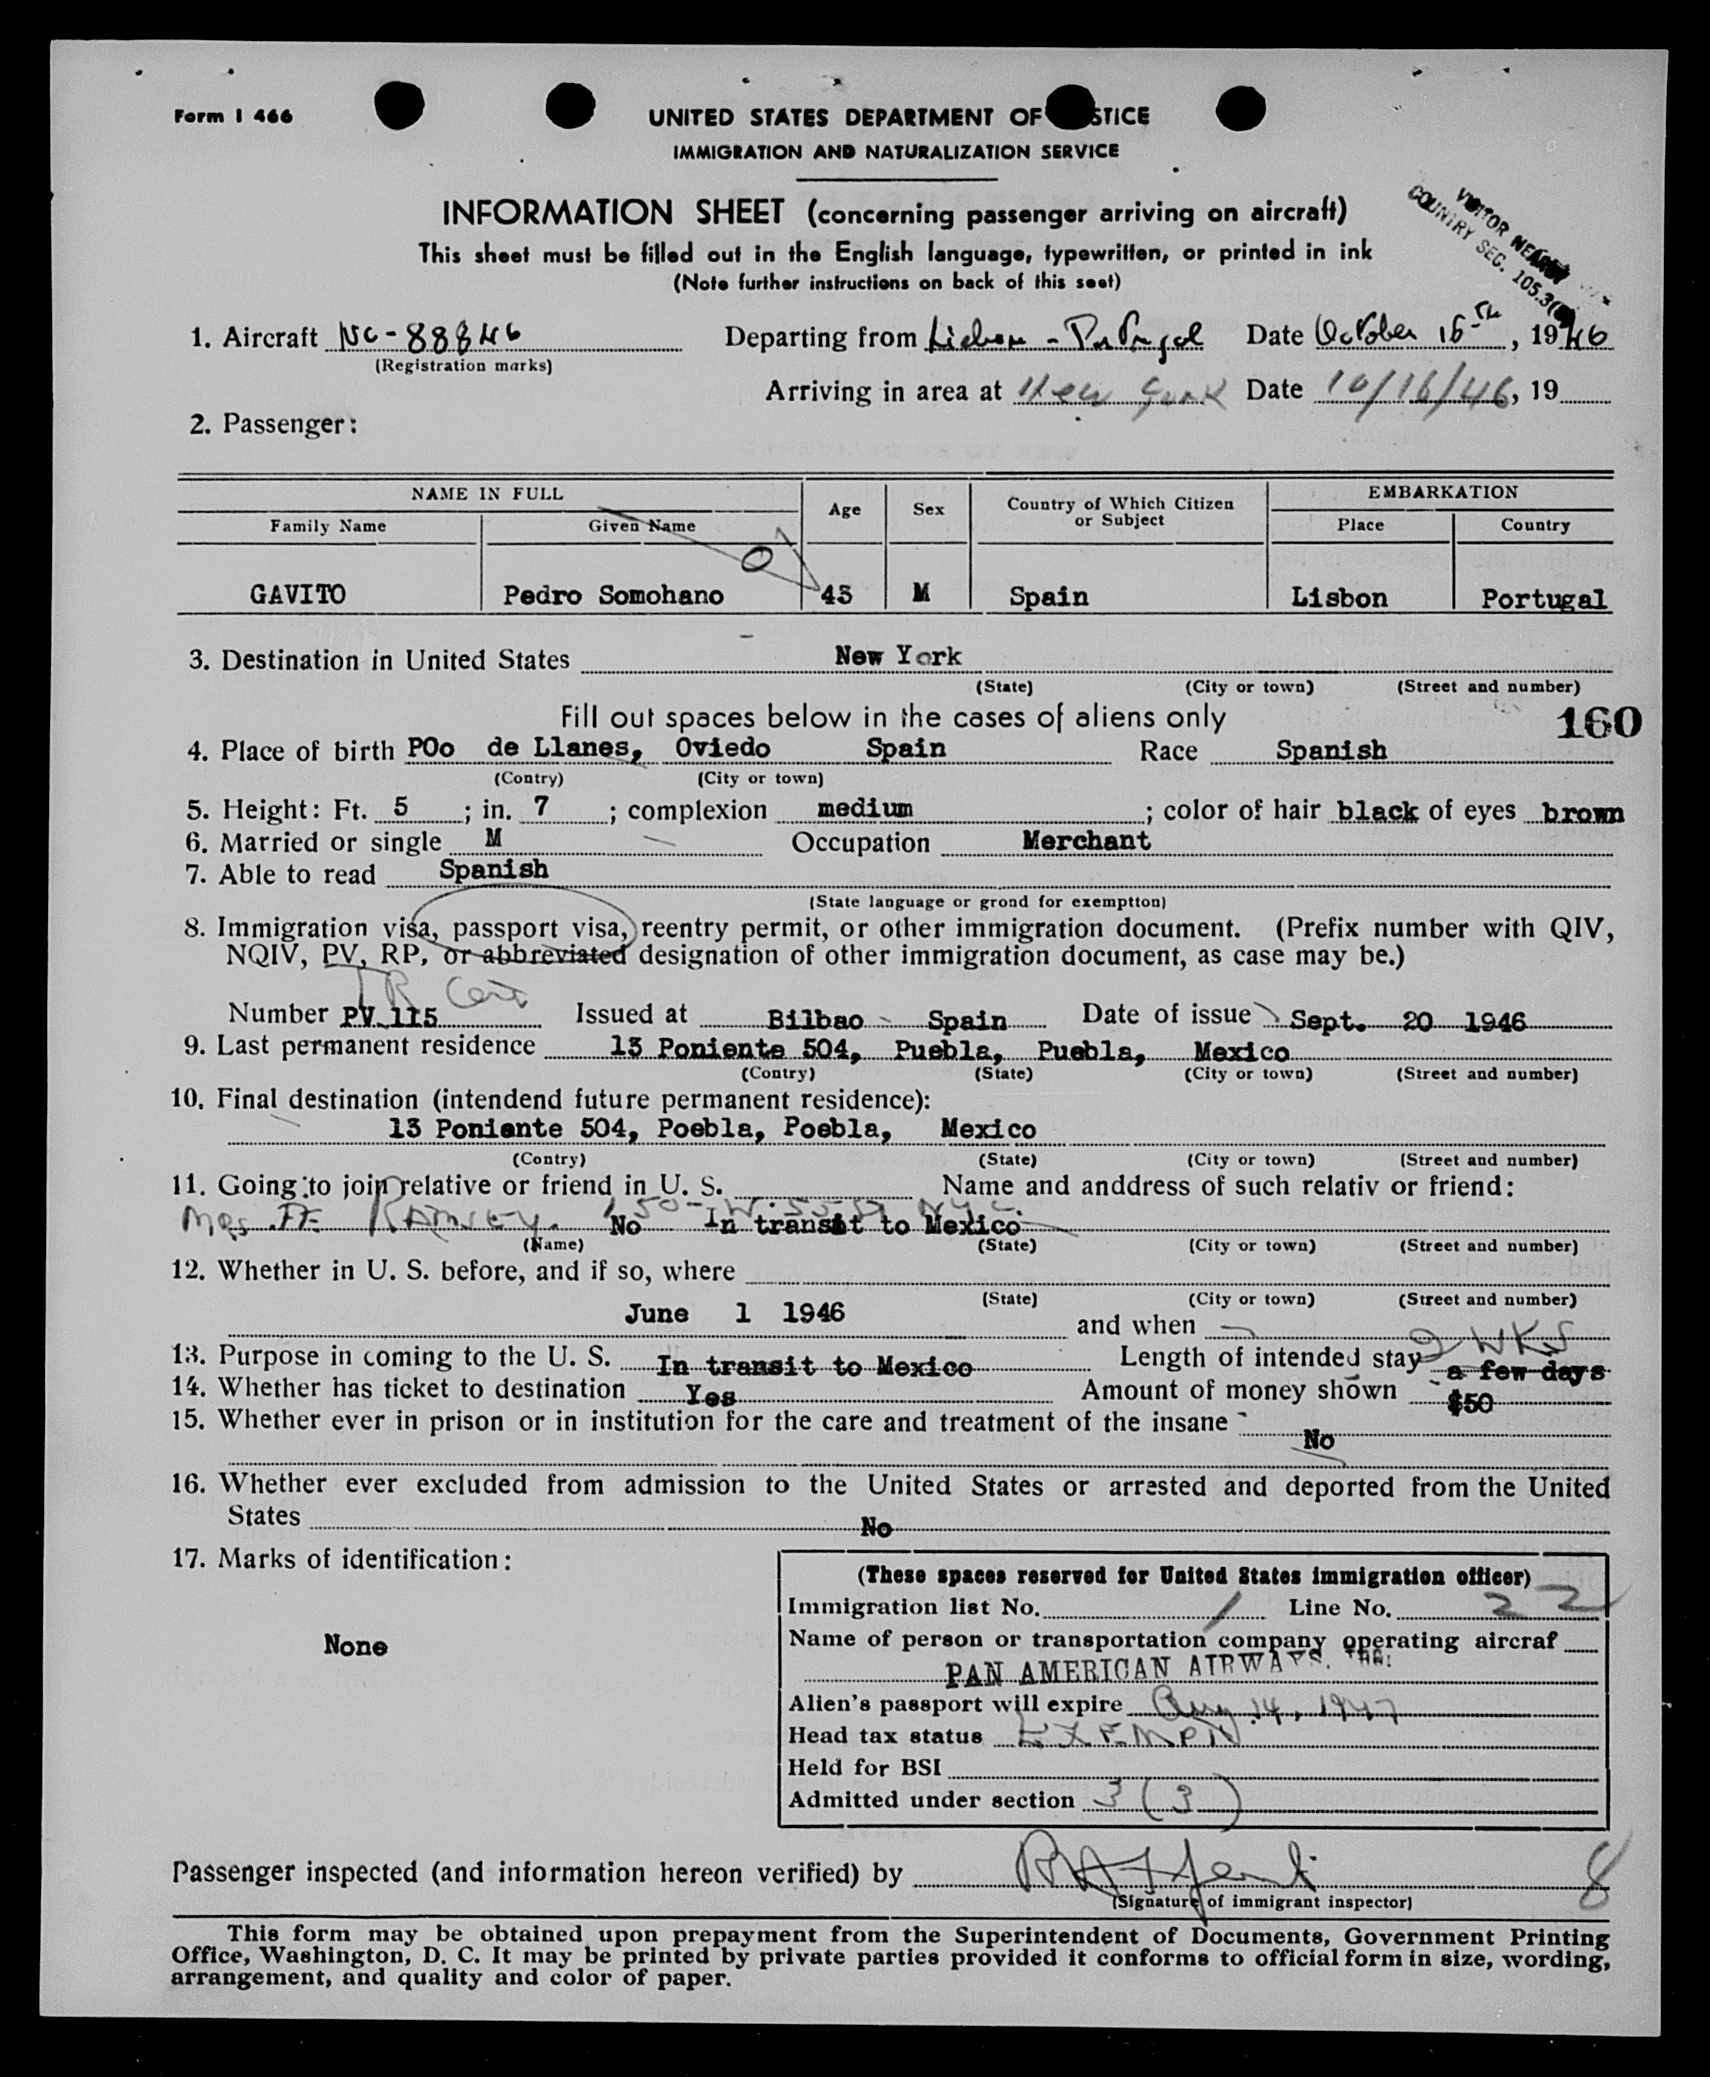 Form I 466
UNITED STATES DEPARTMENT OF STICE
IMMIGRATION AND NATURALIZATION SERVICE
INFORMATION SHEET (concerning passenger arriving on aircraft)
This sheet must be filled out in the English language, typewritten, or printed in ink
(Note further instructions on back of this seet)
VISITOR
COUNTRY SEC. 105.3
1. Aircraft NC-88846 Departing from Lisbon - Portugal Date October 15th, 1946
(Registration marks)
Arriving in area at New York Date 10/16/46, 19
2. Passenger:
NAME IN FULL Age Sex Country of Which Citizen or Subject EMBARKATION
Family Name Given Name Place Country
GAVITO Pedro Somohano 43 M Spain Lisbon Portugal
3. Destination in United States New York
(State) (City or town) (Street and number)
Fill out spaces below in the cases of aliens only
160
4. Place of birth POo de Llanes, Oviedo Spain Race Spanish
(Contry) (City or town)
5. Height: Ft. 5 ; in. 7 ; complexion medium ; color of hair black of eyes brown
6. Married or single M Occupation Merchant
7. Able to read Spanish
(State language or grond for exemptton)
8. Immigration visa, passport visa, reentry permit, or other immigration document. (Prefix number with QIV,
NQIV, PV, RP, or abbreviated designation of other immigration document, as case may be.)
TR Cert
Number PV 115 Issued at Bilbao - Spain Date of issue Sept. 20 1946
9. Last permanent residence 13 Poniente 504, Puebla, Puebla, Mexico
(Contry) (State) (City or town) (Street and number)
10. Final destination (intendend future permanent residence):
13 Poniente 504, Poebla, Poebla, Mexico
(Contry) (State) (City or town) (Street and number)
11. Going to join relative or friend in U. S. Name and anddress of such relativ or friend:
Mrs. FE RAMSEY. 150-W. 55 St N.Y.C.
No In transit to Mexico
(Name) (State) (City or town) (Street and number)
12. Whether in U. S. before, and if so, where
(State) (City or town) (Street and number)
June 1 1946 and when
2 WKS
13. Purpose in coming to the U. S. In transit to Mexico Length of intended stay a few days
14. Whether has ticket to destination Yes Amount of money shown $50
15. Whether ever in prison or in institution for the care and treatment of the insane No
16. Whether ever excluded from admission to the United States or arrested and deported from the United
States No
17. Marks of identification:
None
(These spaces reserved for United States immigration officer)
Immigration list No. 1 Line No. 22
Name of person or transportation company operating aircraf
PAN AMERICAN AIRWAYS, INC.
Alien's passport will expire Aug. 14, 1947
Head tax status EXEMPT
Held for BSI
Admitted under section 3 (3)
Passenger inspected (and information hereon verified) by
(Signature of immigrant inspector)
8
This form may be obtained upon prepayment from the Superintendent of Documents, Government Printing
Office, Washington, D. C. It may be printed by private parties provided it conforms to official form in size, wording,
arrangement, and quality and color of paper.